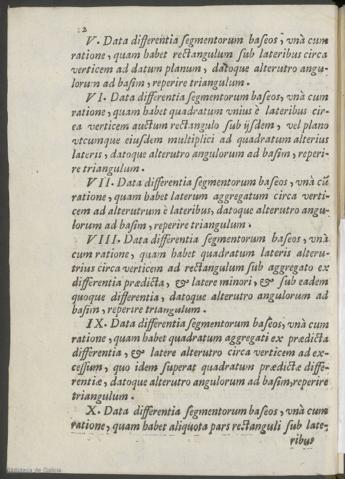 2
V. Data differentia segmentorum baseos, vnà cum
ratione, quam habet rectangulum sub lateribus circa
verticem ad datum planum, datoque alterutro angu-
lorum ad basim, reperire triangulum.
VI. Data differentia segmentorum baseos, vnà cum
ratione, quam habet quadratum vnius è lateribus cir-
ca verticem auctum rectangulo sub ijsdem, vel plano
vtcumque eiusdem multiplici ad quadratum alterius
lateris, datoque alterutro angulorum ad basim, reperi-
re triangulum.
VII. Data differentia segmentorum baseos, vnà cũ
ratione, quam habet laterum aggregatum circa verti-
cem ad alterutrum è lateribus, datoque alterutro angu-
lorum ad basim, reperire triangulum.
VIII. Data differentia segmentorum baseos, vnà
cum ratione, quam habet quadratum lateris alteru-
trius circa verticem ad rectangulum sub aggregato ex
differentia prædicta, & latere minori, & sub eadem
quoque differentia, datoque alterutro angulorum ad
basim, reperire triangulum.
IX. Data differentia segmentorum baseos, vnà cum
ratione, quam habet quadratum aggregati ex prædicta
differentia, & latere alterutro circa verticem ad ex-
cessum, quo idem superat quadratum prædictæ diffe-
rentiæ, datoque alterutro angulorum ad basim, reperire
triangulum.
X. Data differentia segmentorum baseos, vnà cum
ratione, quam habet aliquota pars rectanguli sub late-
ribus
Biblioteca de Galicia